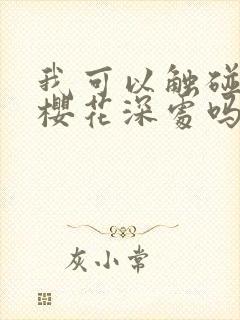 我可以触碰
樱花深处吗
灰小常